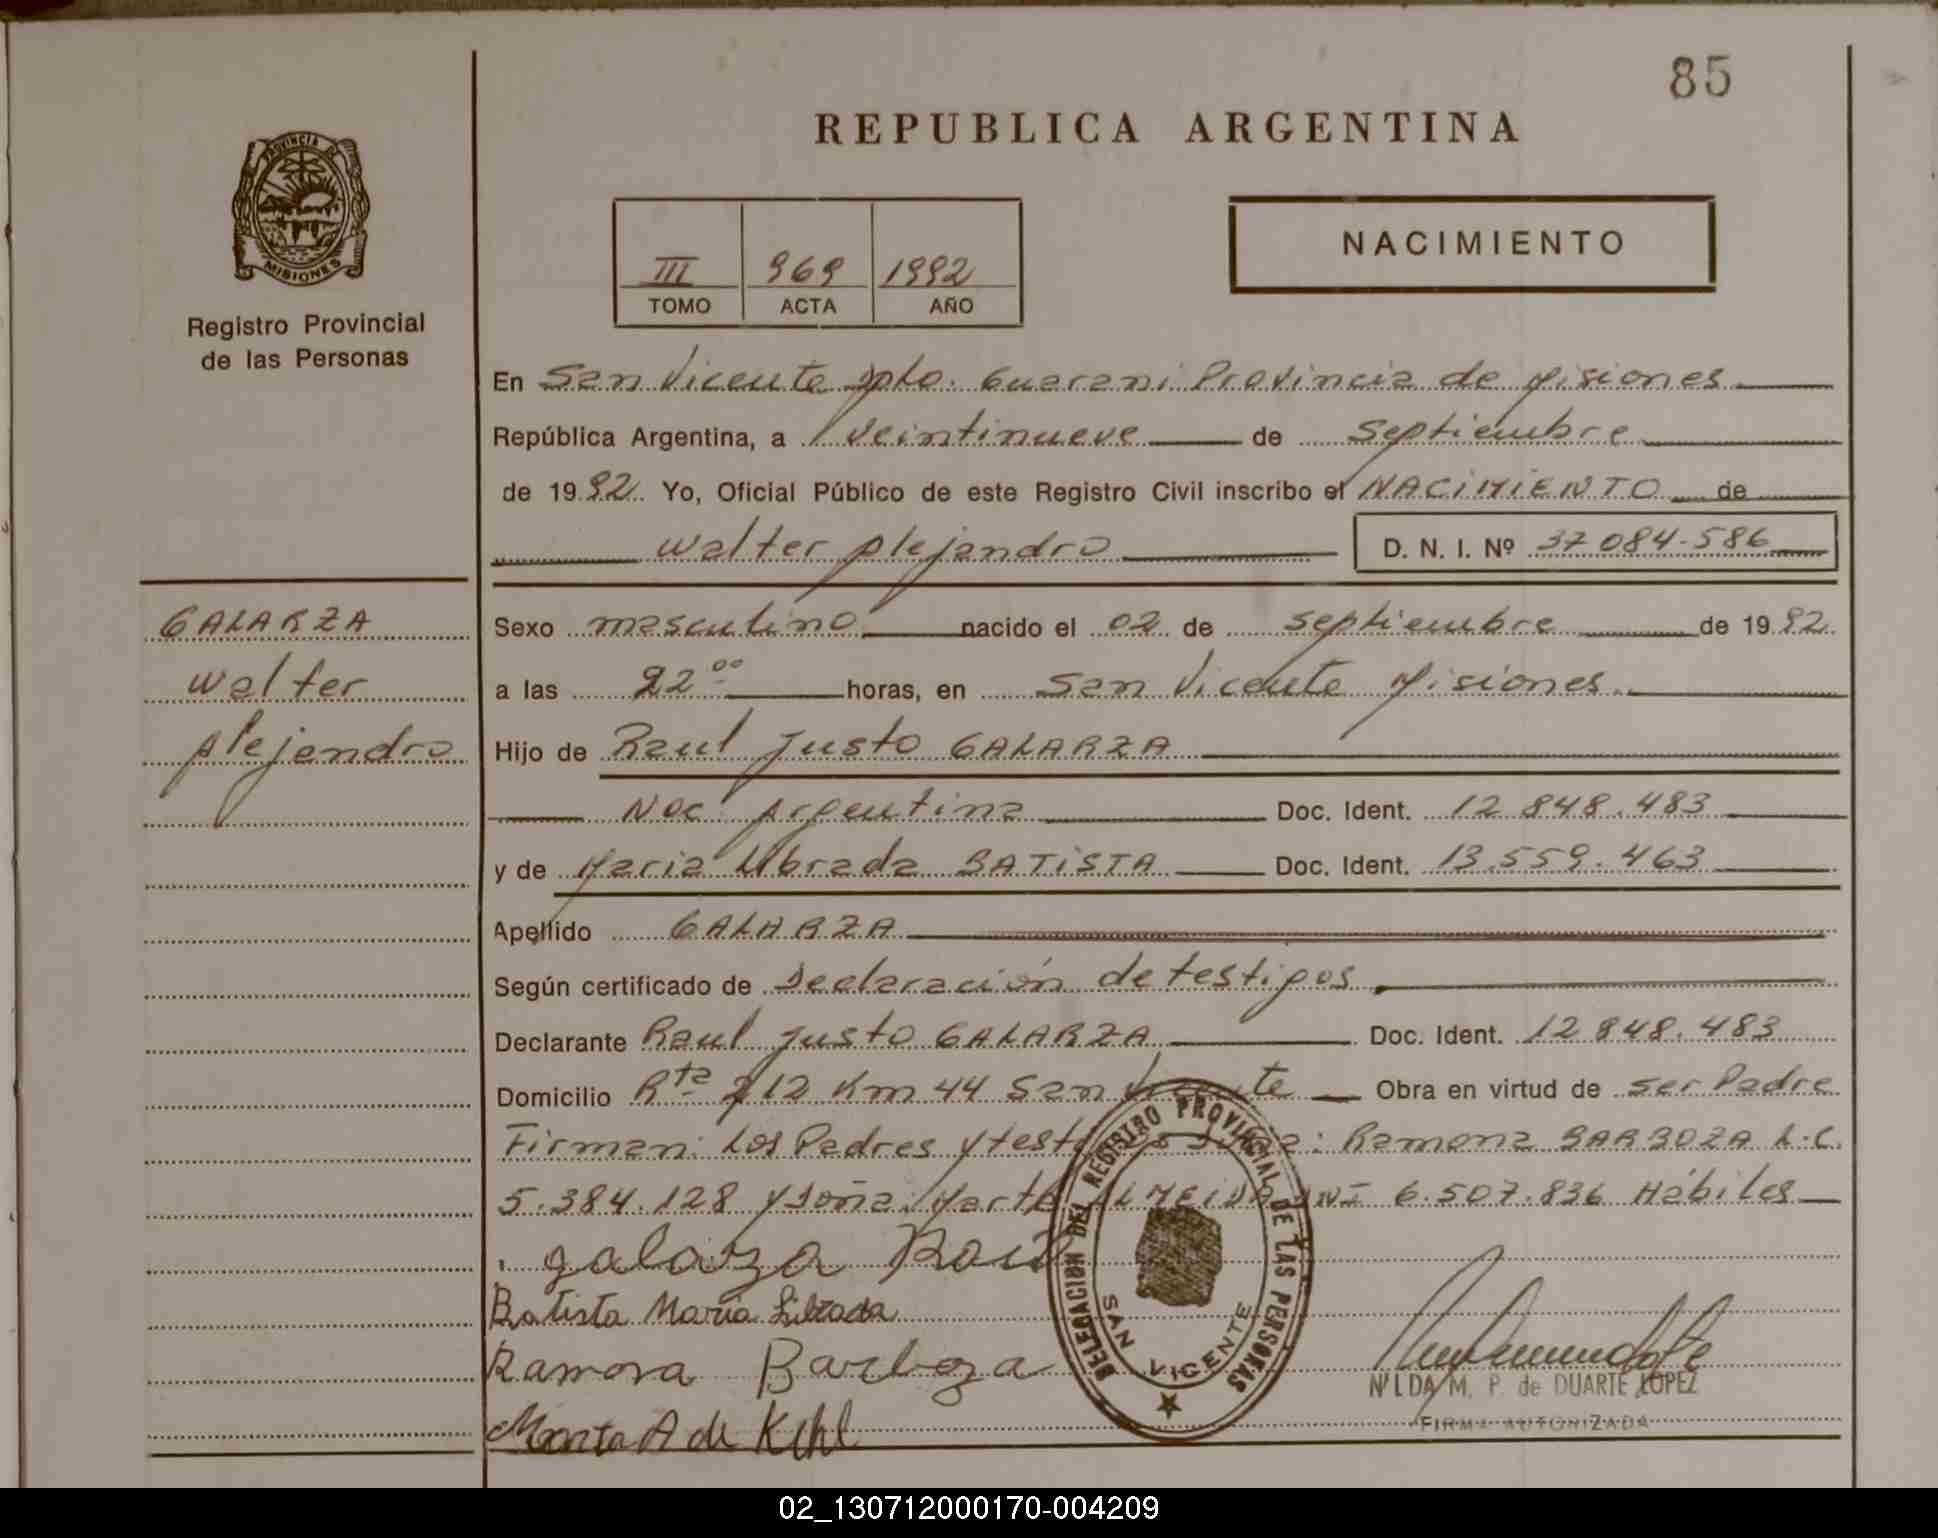 85
REPUBLICA ARGENTINA
PROVINCIA DE
MISIONES
Registro Provincial
de las Personas
III 969 1992
TOMO ACTA AÑO
NACIMIENTO
En San Vicente Dpto. Guarani Provincia de Misiones
República Argentina, a veintinueve de Septiembre
de 1992. Yo, Oficial Público de este Registro Civil inscribo el NACIMIENTO de
Walter Alejandro D. N. I. Nº 37 084.586
GALARZA
Walter
Alejandro
Sexo masculino nacido el 02 de septiembre de 1992
a las 22⁰⁰ horas, en San Vicente Misiones.
Hijo de Raul Justo GALARZA
Nac Argentina Doc. Ident. 12 848.483
y de Maria Librada BATISTA Doc. Ident. 13.559.463
Apellido GALARZA
Según certificado de Declaración de testigos
Declarante Raul Justo GALARZA Doc. Ident. 12 848.483
Domicilio Rta 212 Km 44 San Vicente Obra en virtud de ser Padre
Firman: Los Padres y : Ramona BARBOZA L.C.
5.384.128 y Doña Marta ALMEIDA DNI 6.507.836 Hábiles
galarza Raul
Batista Maria Librada
Ramona Barboza
Marta A de Kihl
DELEGACION DEL REGISTRO PROVINCIAL DE LAS PERSONAS
SAN VICENTE
NILDA M. P. de DUARTE LOPEZ
FIRMA AUTORIZADA
02_130712000170-004209